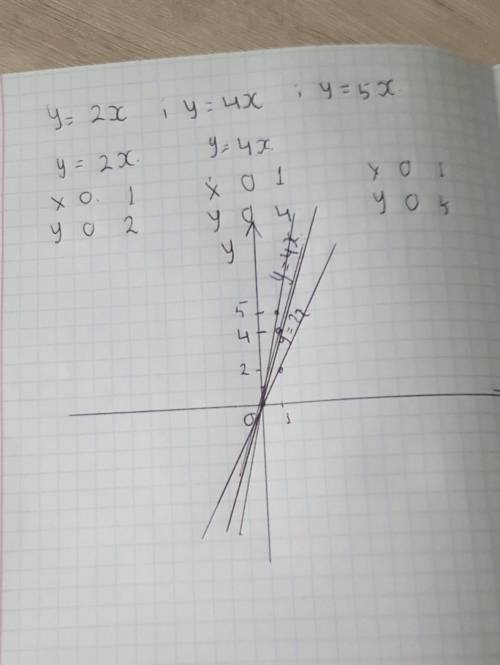 y = 2x ; y = 4x ; y = 5x
y = 2x. y = 4x
x 0. 1 x 0 1 x 0 1
y 0 2 y 0 4 y 0 5
y
y = 4x
5
4
y = 2x
2
0 1